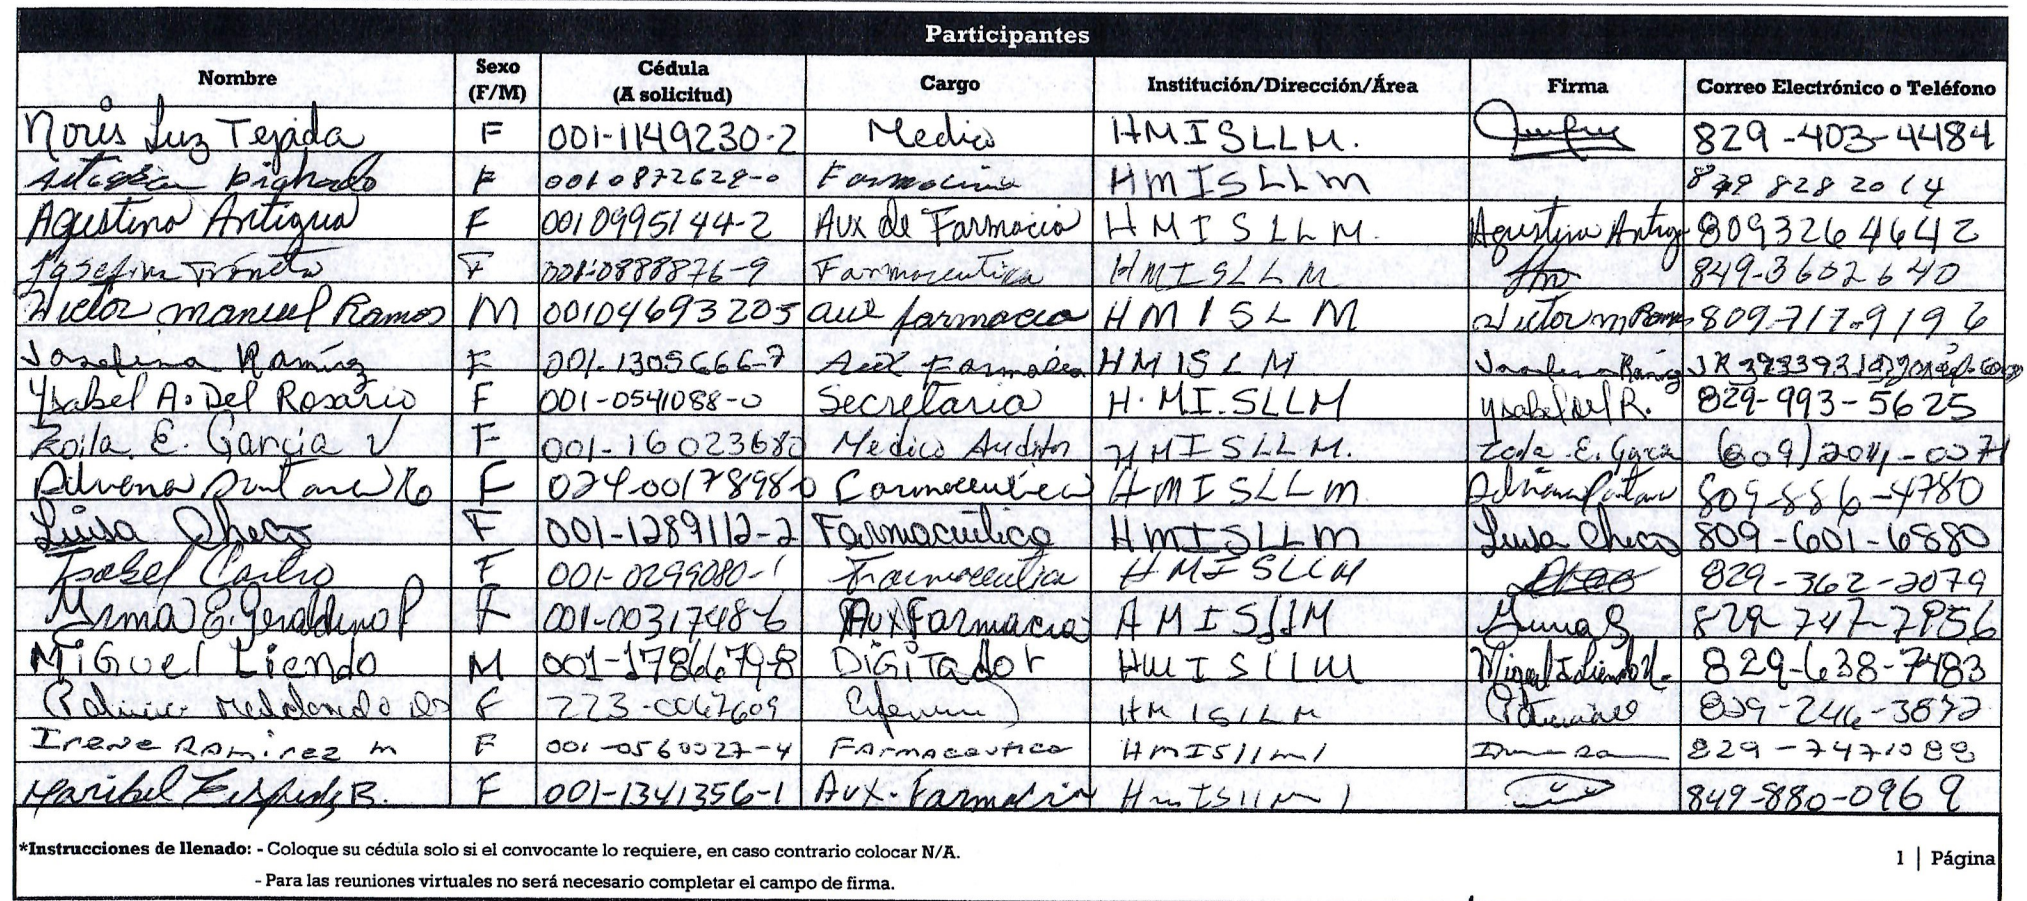 Participantes
Nombre Sexo (F/M) Cédula (A solicitud) Cargo Institución/Dirección/Área Firma Correo Electrónico o Teléfono
Noris Luz Tejada F 001-1149230-2 Medico HMISLLM. 829-403-4484
F 0010872628-0 HMISLLM 828 2014
Agustina Antigua F 0010995144-2 Aux de Farmacia HMISLLM. Agustina Antig 8093264642
Josefina F 001-0888876-9 Farmaceutica HMISLLM 849-3602640
Victor manuel Ramos M 00104693205 aux farmacia HMISLM Victor m Ramos 809-717-9196
Josefina Ramírez F 001-1305666-7 Aux Farmacia HMISLM Josefina Ramírez
Ysabel A. Del Rosario F 001-0541088-0 Secretaria H.MI.SLLM Ysabel del R. 829-993-5625
Zoila E. García V F 001-16023680 Medico Auditor HMISLLM. Zoila E. García
F 024-0017898-0 Farmaceutica HMISLLM 809-886-4780
Luisa Checo F 001-1289112-2 Farmaceutica HMISLLM Luisa Checo 809-601-6880
Isabel Castro F 001-0299080-1 Farmaceutica HMISLLM 829-362-2079
E. Geraldino P F 001-0031748-6 Aux Farmacia HMISLLM 829-747-7956
MiGuel Liendo M 001-1786679-8 DiGiTador HMISLLM 829-638-7483
F 223-0067609 HMISLLM
Irene Ramirez m F 001-0560027-4 Farmaceutica HMISllm 829-7471088
Maribel F 001-1341356-1 Aux. Farmacia HmISllm 849-880-0969
*Instrucciones de llenado: - Coloque su cédula solo si el convocante lo requiere, en caso contrario colocar N/A.
1 | Página
- Para las reuniones virtuales no será necesario completar el campo de firma.